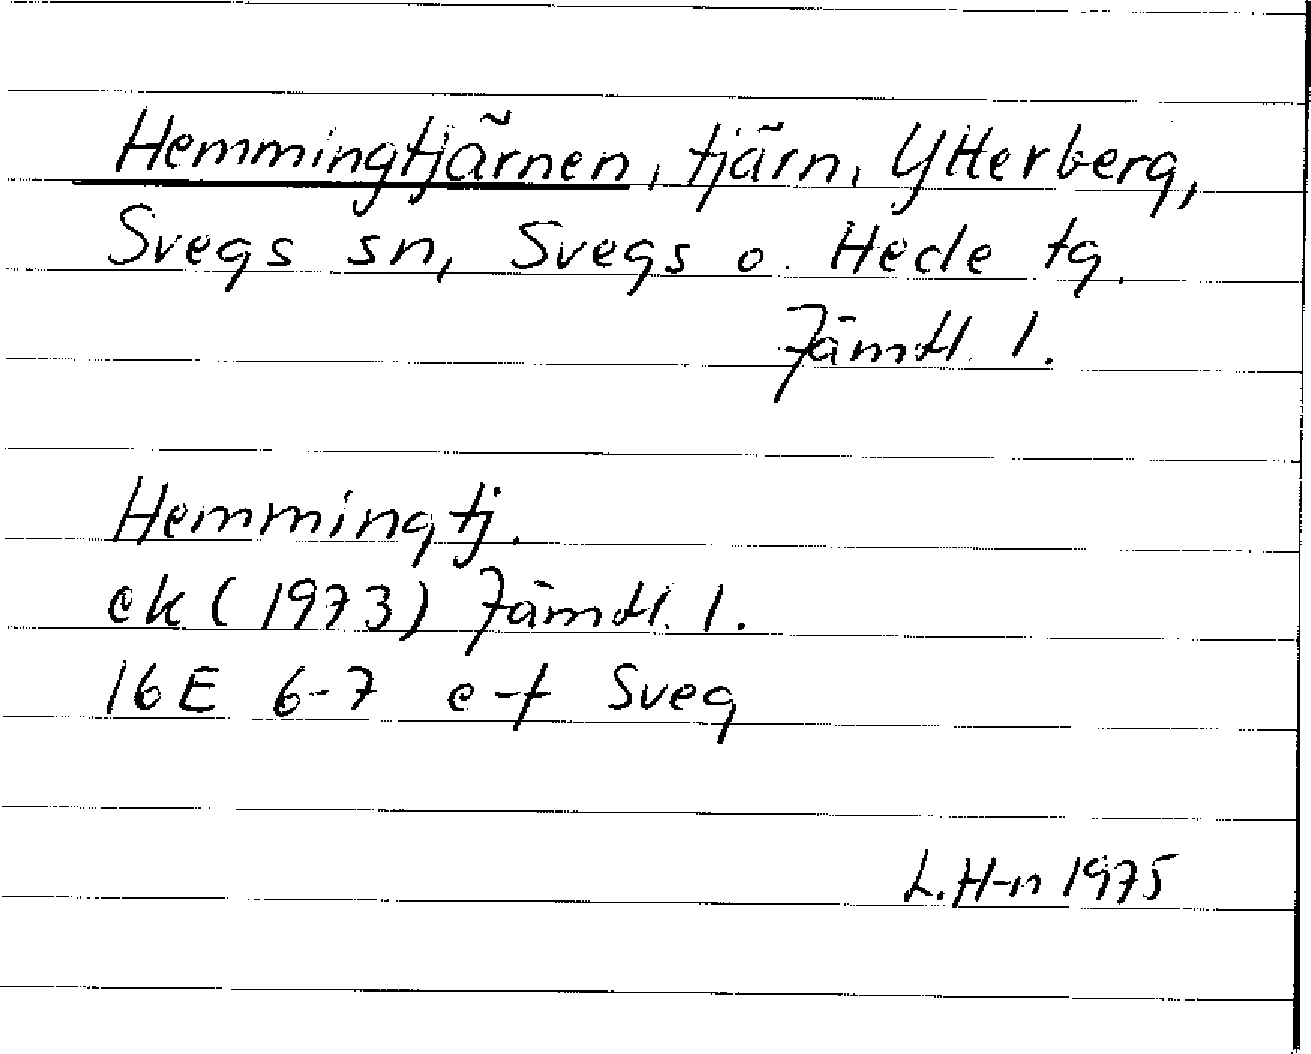 Hemmingtjärnen, tjärn, Ytterberg,
Svegs sn, Svegs o. Hede tg.
Jämtl. l.
Hemmingtj.
ek (1973) Jämtl. l.
16E 6-7 e-f Sveg
L. H-n 1975